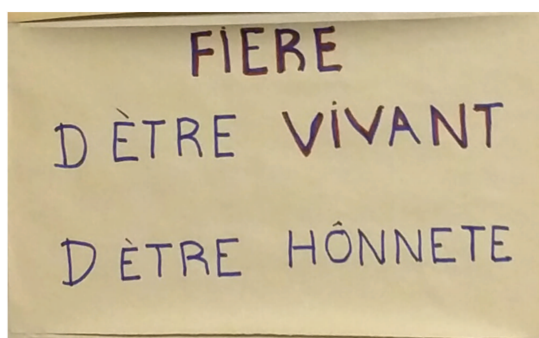 FIERE
D ÈTRE VIVANT
D ÈTRE HÔNNETE